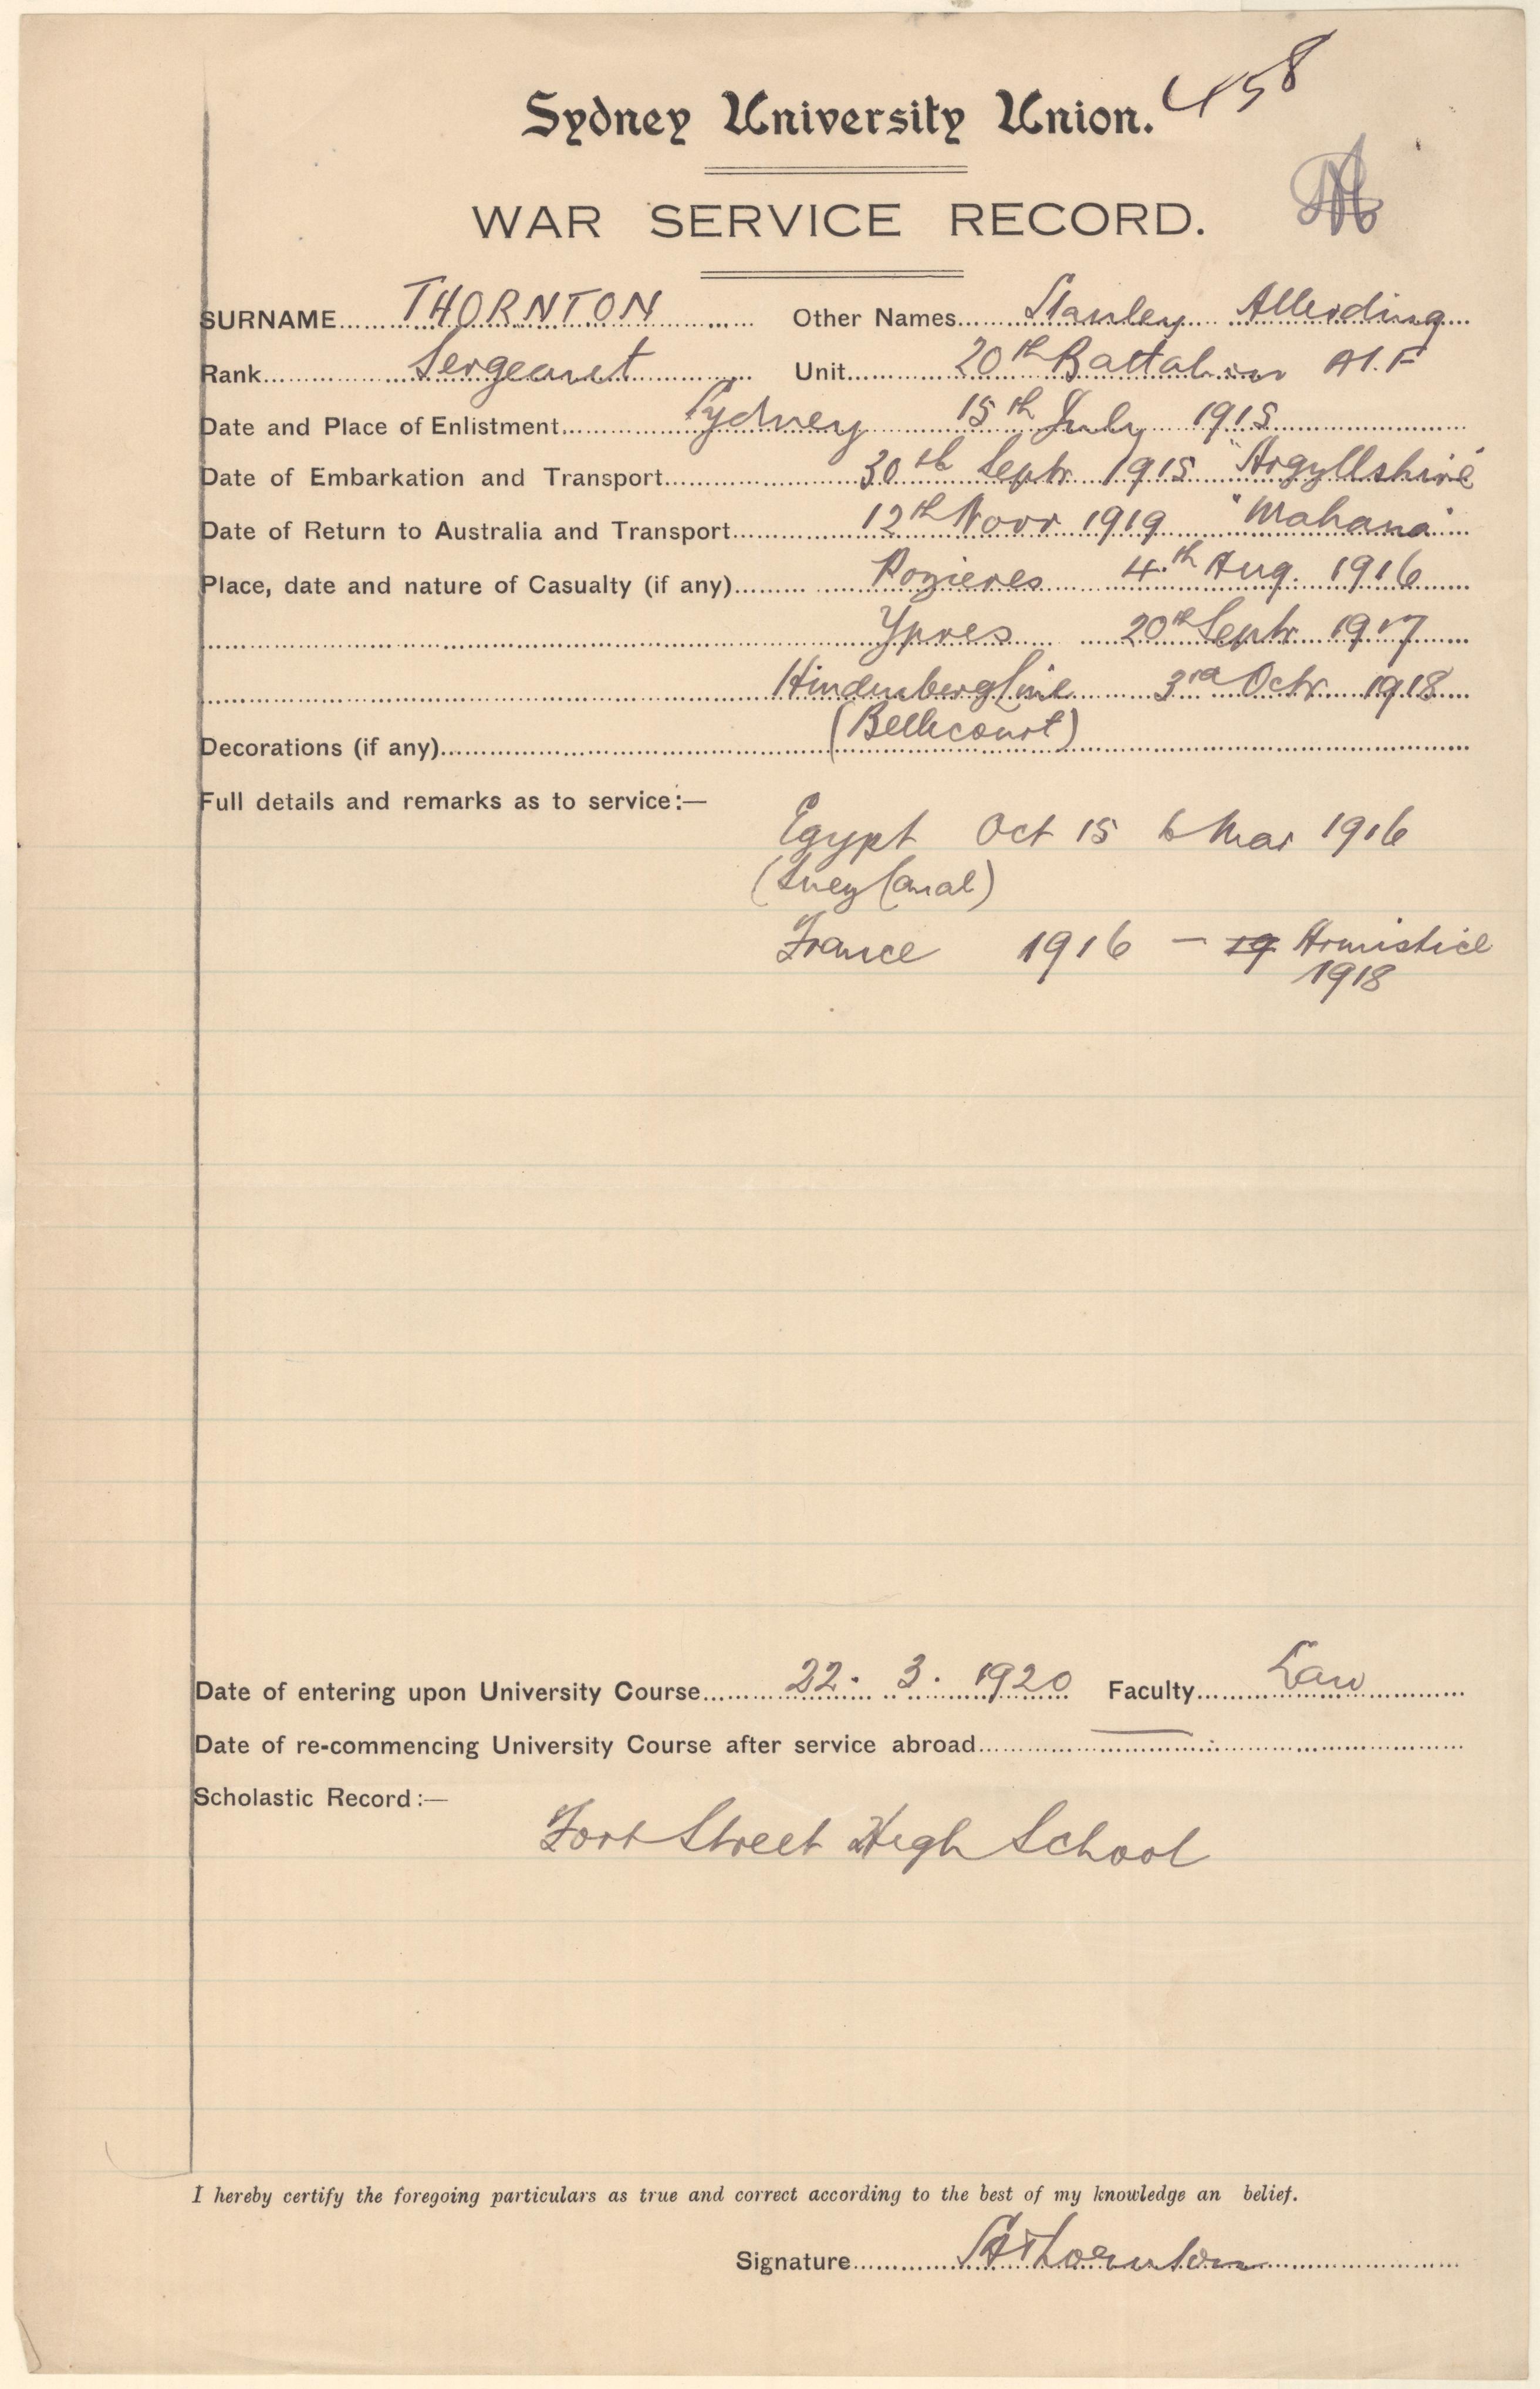 Sydney University Union. 458
WAR SERVICE RECORD.
SURNAME THORNTON Other Names Stanley Allerding
Rank Sergeant Unit 20th Battalion A.I.F
Date and Place of Enlistment Sydney 15th July 1915
Date of Embarkation and Transport 30th Septr 1915 "Argyllshire"
Date of Return to Australia and Transport 12th Novr 1919 "Mahana"
Place, date and nature of Casualty (if any) Pozieres 4th Aug. 1916
Ypres 20th Septr 1917
Hindenberg Line 3rd Octr 1918
(Bellecourt)
Decorations (if any)
Full details and remarks as to service:—
Egypt Oct 15 to Mar 1916
(Suez Canal)
France 1916 – 19 Armistice
1918
Date of entering upon University Course 22. 3. 1920 Faculty Law
Date of re-commencing University Course after service abroad
Scholastic Record:—
Fort Street High School
I hereby certify the foregoing particulars as true and correct according to the best of my knowledge an belief.
Signature SAThornton